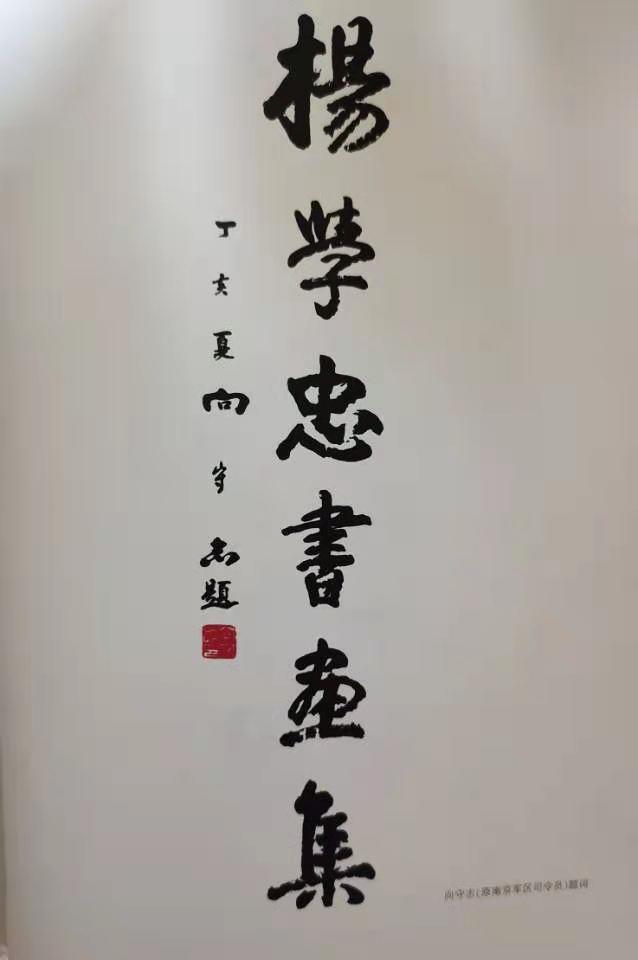 楊學忠書畫集
丁亥夏向守志題
向守志(原南京军区司令员)题词